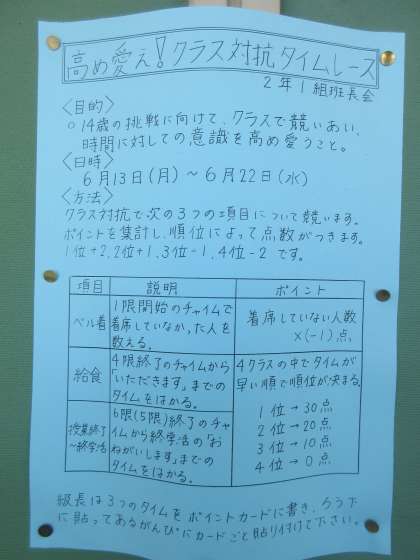 高め愛え!クラス対抗タイムレース
2年1組班長会
<目的>
○14歳の挑戦に向けて、クラスで競いあい、
時間に対しての意識を高め愛うこと。
<日時>
6月13日(月)~6月22日(水)
<方法>
クラス対抗で次の3つの項目について競います。
ポイントを集計し、順位によって点数がつきます。
1位+2,2位+1,3位-1,4位-2です。
項目 説明 ポイント
ベル着
1限開始のチャイムで
着席していなかった人を
数える。
着席していない人数
×(-1)点
給食
4限終了のチャイムから
「いただきます」までの
タイムをはかる。
授業終了
~終学活
6限(5限)終了のチャ
イムから終学活の「お
ねがいします」までの
タイムをはかる。
4クラスの中でタイムが
早い順で順位が決まる。
1位→30点
2位→20点
3位→10点
4位→0点
級長は3つのタイムをポイントカードに書き、ろう下
に貼ってあるがんぴにカードごと貼り付けて下さい。